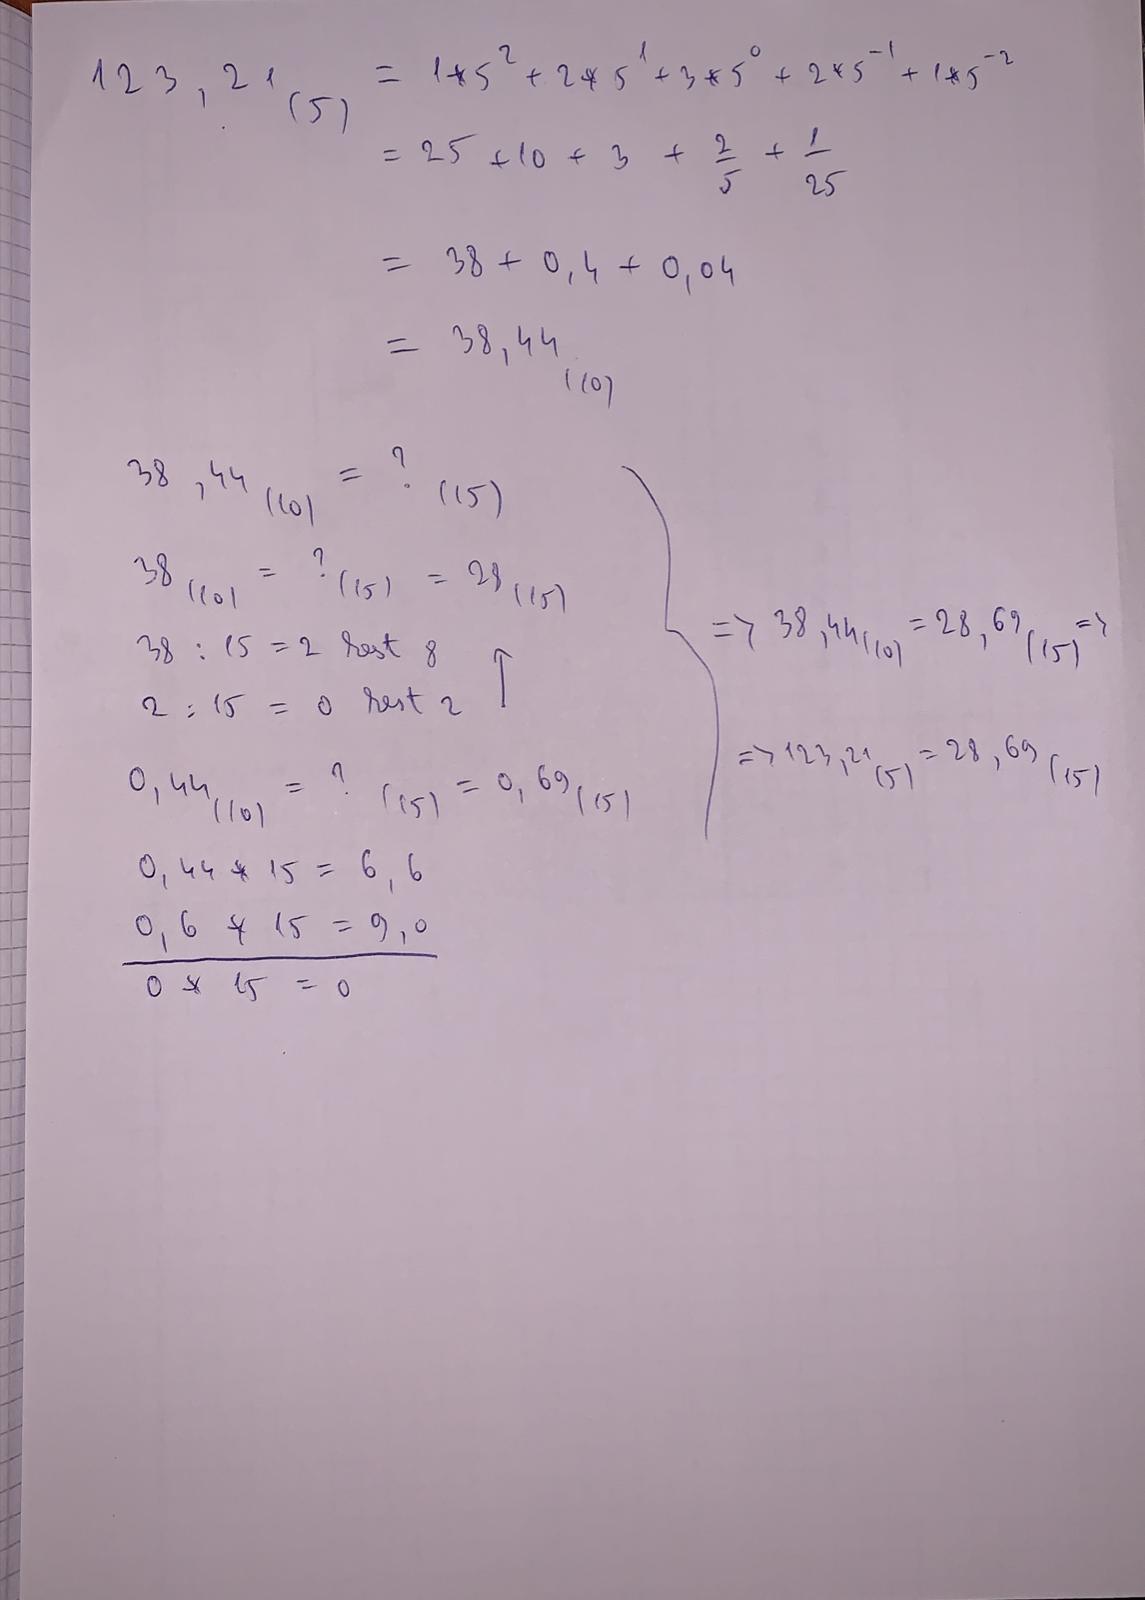 123,21(5) = 1*5^2 + 2*5^1 + 3*5^0 + 2*5^-1 + 1*5^-2
= 25 + 10 + 3 + 2/5 + 1/25
= 38 + 0,4 + 0,04
= 38,44(10)
38,44(10) = ?(15)
38(10) = ?(15) = 28(15)
38 : 15 = 2 rest 8
2 : 15 = 0 rest 2 ↑
0,44(10) = ?(15) = 0,69(15)
0,44 * 15 = 6,6
0,6 * 15 = 9,0
0 * 15 = 0
=> 38,44(10) = 28,69(15) =>
=> 123,21(5) = 28,69(15)